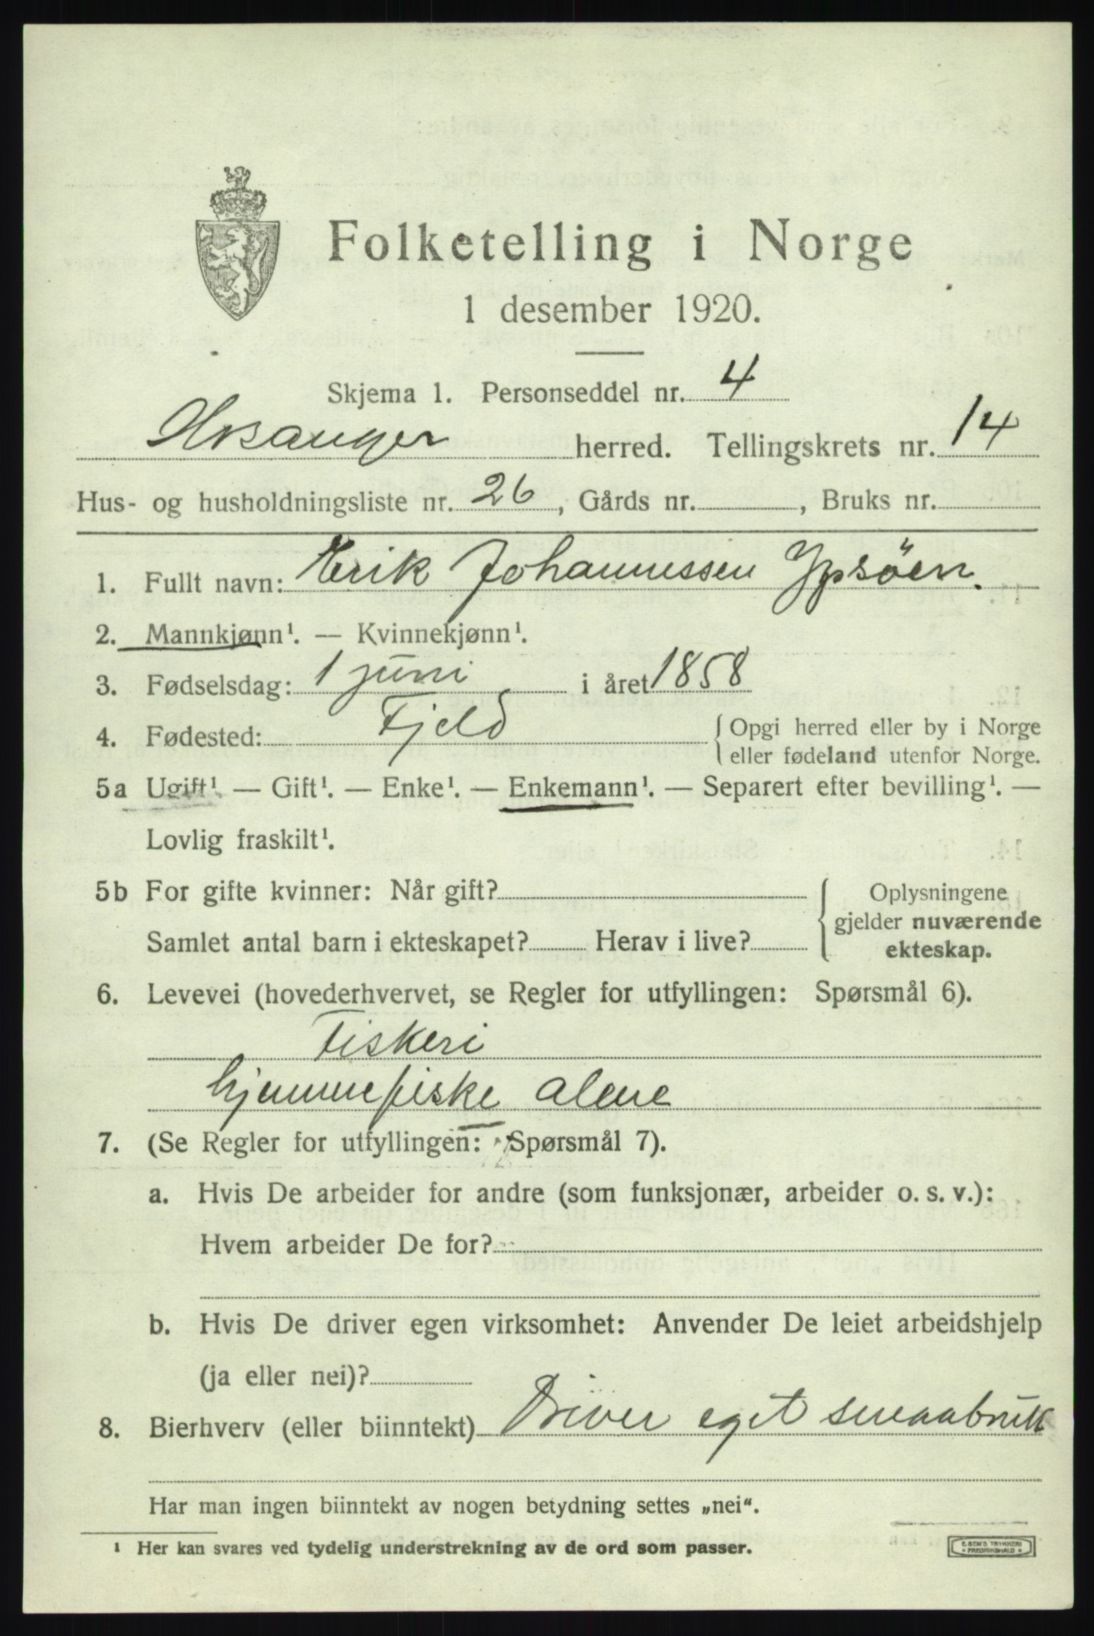 Folketelling i Norge
1 desember 1920.
Skjema 1. Personseddel nr. 4
Hosanger herred. Tellingskrets nr. 14
Hus- og husholdningsliste nr. 26, Gårds nr. , Bruks nr.
1. Fullt navn: Erik Johannessen Ypsöen.
2. Mannkjønn¹. — Kvinnekjønn¹.
3. Fødselsdag: 1 juni i året 1858
4. Fødested: Fjeld { Opgi herred eller by i Norge
eller fødeland utenfor Norge.
5a Ugift¹. — Gift¹. — Enke¹. — Enkemann¹. — Separert efter bevilling¹. —
Lovlig fraskilt¹.
5b For gifte kvinner: Når gift? { Oplysningene
gjelder nuværende
Samlet antal barn i ekteskapet? Herav i live?
ekteskap.
6. Levevei (hovederhvervet, se Regler for utfyllingen: Spørsmål 6).
Fiskeri
hjemmefiske alene
7. (Se Regler for utfyllingen: Spørsmål 7).
a. Hvis De arbeider for andre (som funksjonær, arbeider o. s. v.):
Hvem arbeider De for?
b. Hvis De driver egen virksomhet: Anvender De leiet arbeidshjelp
(ja eller nei)?
8. Bierhverv (eller biinntekt) Driver eget smaabruk
Har man ingen biinntekt av nogen betydning settes „nei“.
¹ Her kan svares ved tydelig understrekning av de ord som passer.